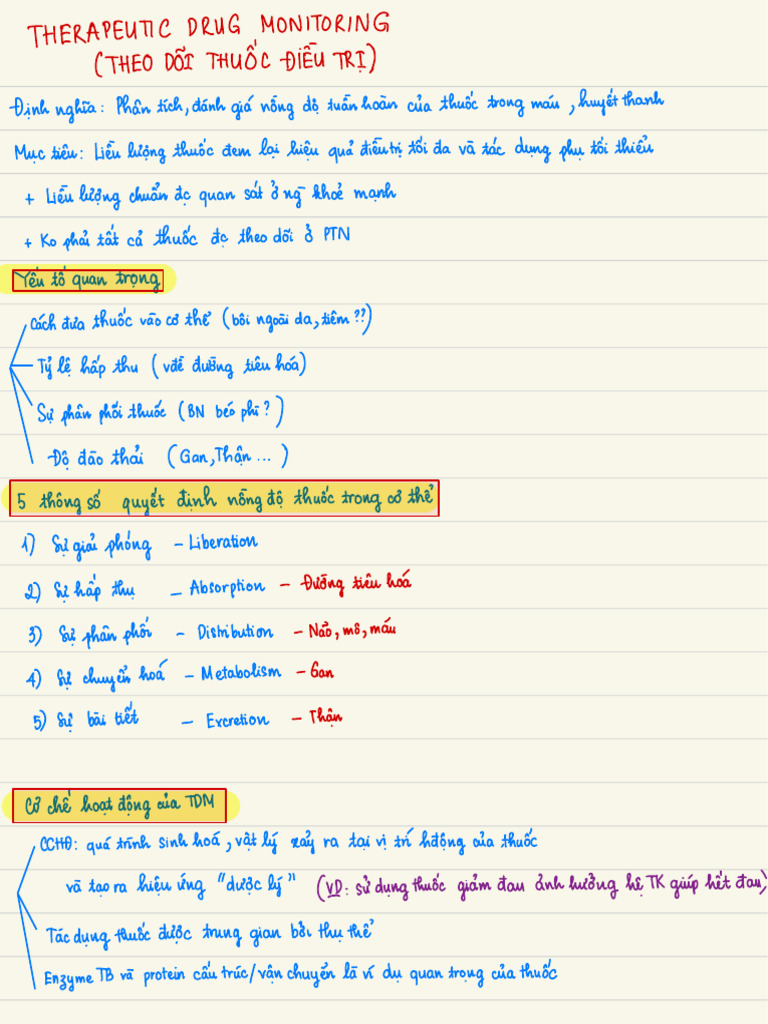 THERAPEUTIC DRUG MONITORING
(THEO DÕI THUỐC ĐIỀU TRỊ)
Định nghĩa: Phân tích, đánh giá nồng độ tuần hoàn của thuốc trong máu, huyết thanh
Mục tiêu: Liều lượng thuốc đem lại hiệu quả điều trị tối đa và tác dụng phụ tối thiểu
+ Liều lượng chuẩn đc quan sát ở ng khoẻ mạnh
+ Ko phải tất cả thuốc đc theo dõi ở PTN
Yếu tố quan trọng
Cách đưa thuốc vào cơ thể (bôi ngoài da, tiêm ??)
Tỷ lệ hấp thu (vđề đường tiêu hoá)
Sự phân phối thuốc (BN béo phì ?)
Độ đào thải (Gan, Thận ...)
5 thông số quyết định nồng độ thuốc trong cơ thể
1) Sự giải phóng - Liberation
2) Sự hấp thụ - Absorption - Đường tiêu hoá
3) Sự phân phối - Distribution - Não, mô, máu
4) Sự chuyển hoá - Metabolism - Gan
5) Sự bài tiết - Excretion - Thận
Cơ chế hoạt động của TDM
CCHĐ: quá trình sinh hoá, vật lý xảy ra tại vị trí hđộng của thuốc
và tạo ra hiệu ứng "dược lý" (VD: sử dụng thuốc giảm đau ảnh hưởng hệ TK giúp hết đau)
Tác dụng thuốc được trung gian bởi thụ thể
Enzyme TB và protein cấu trúc/vận chuyển là ví dụ quan trọng của thuốc